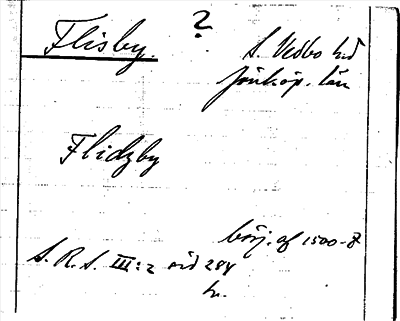 ?
Flisby.
S. Vedbo hd
Jönköp. län
Flidzby
börj. af 1500-t
S. R. S. III:2 sid 284